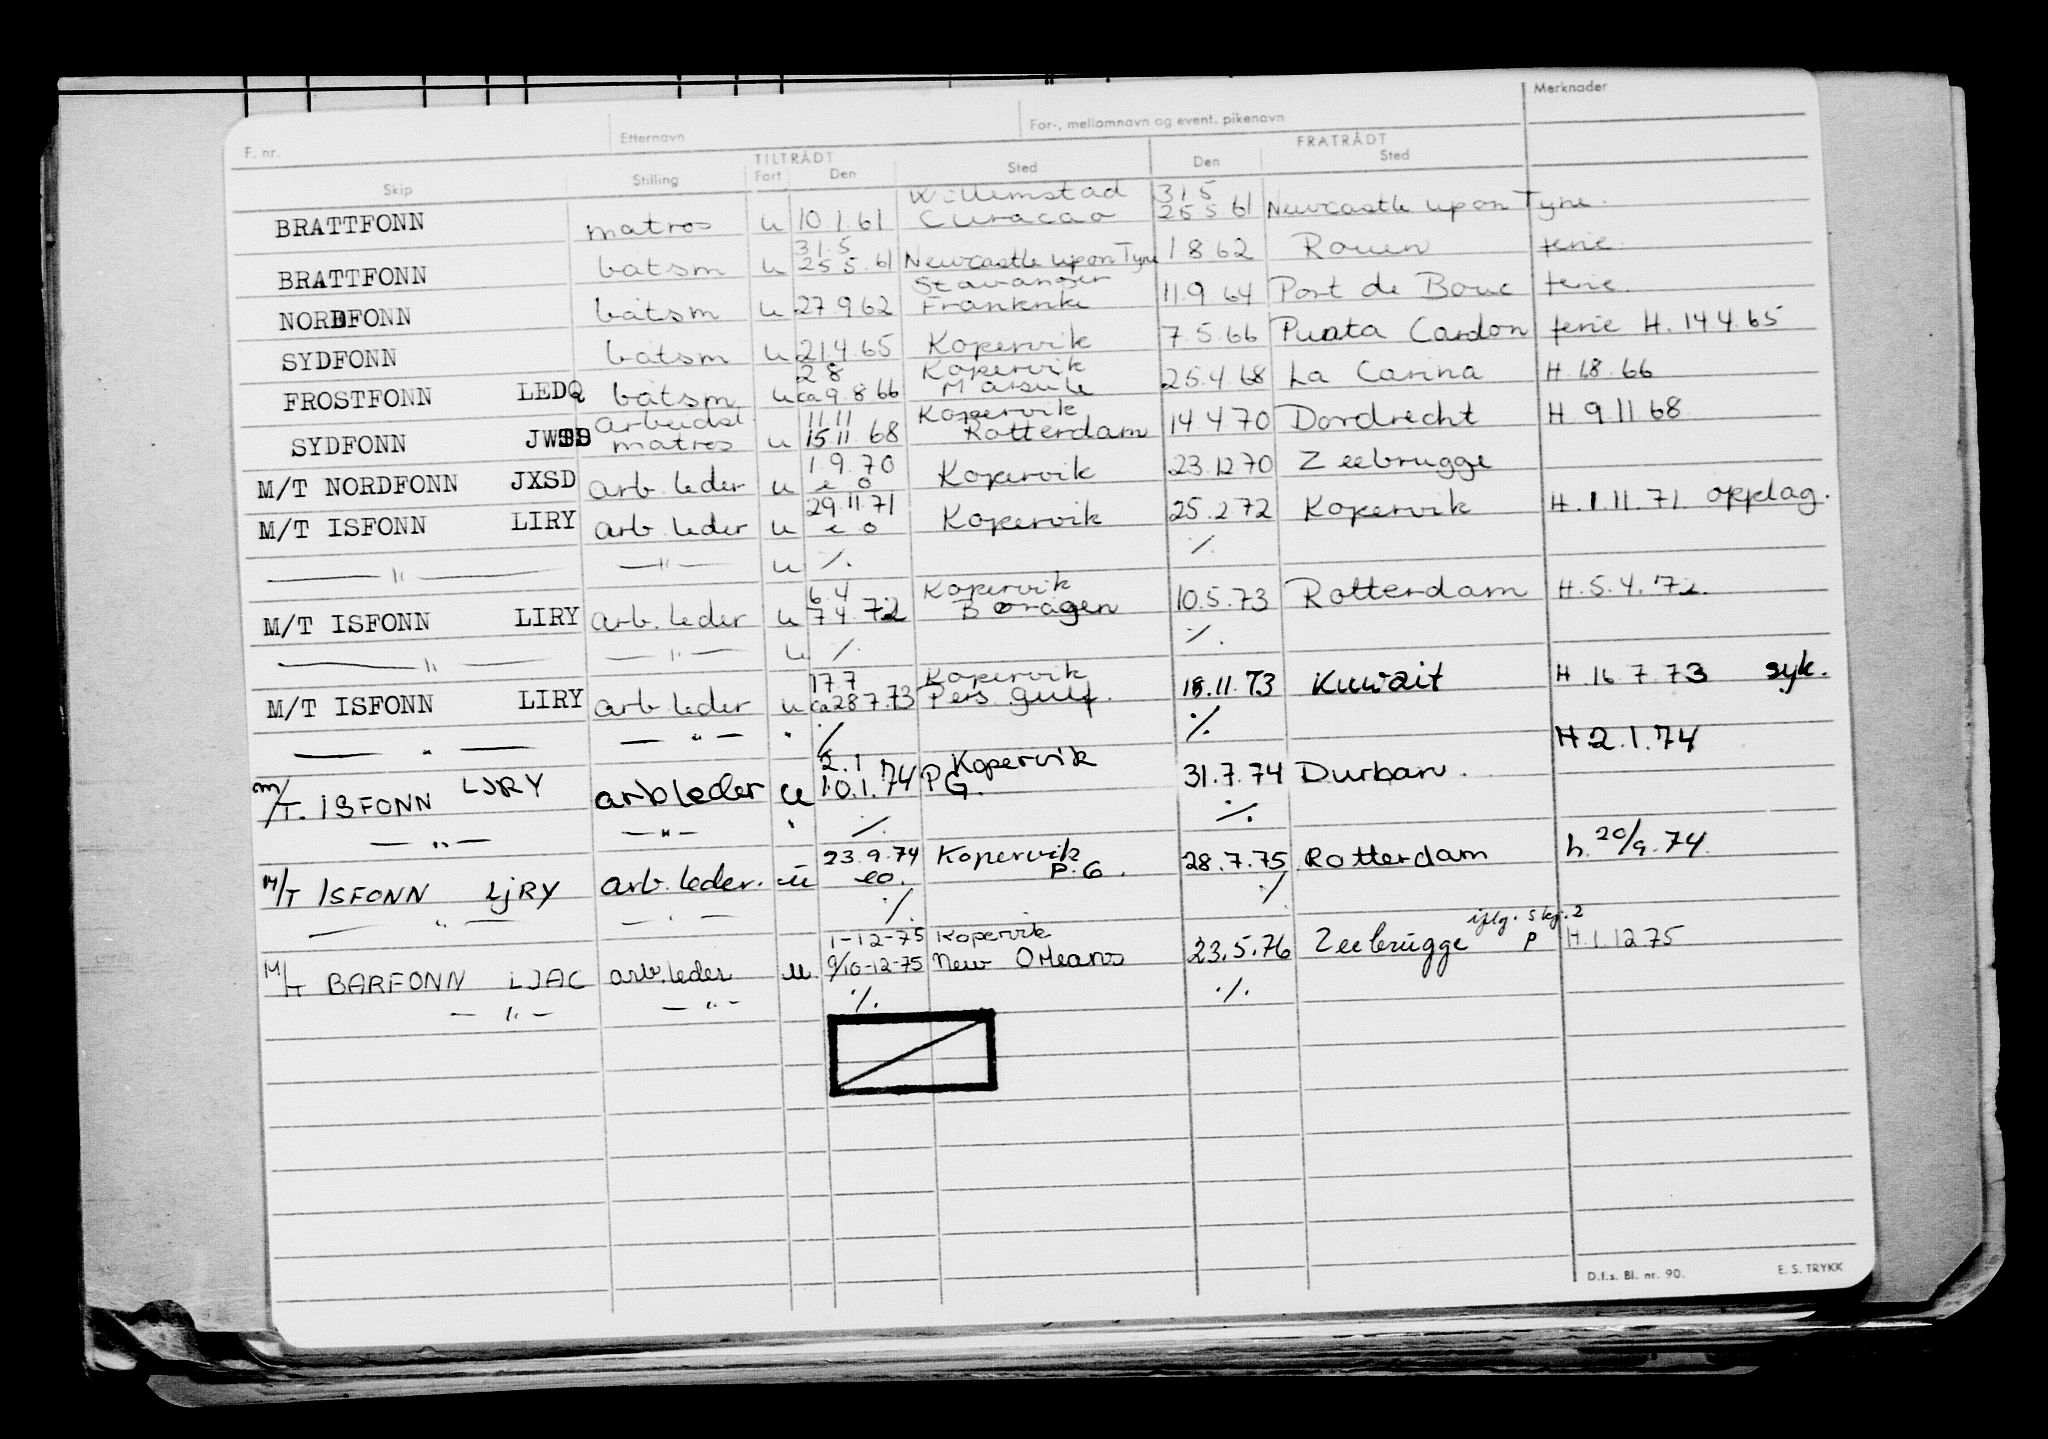 F. nr. Etternavn For-, mellomnavn og event. pikenavn Merknader
TILTRÅDT FRATRÅDT
Skip Stilling Fort Den Sted Den Sted
Willemstad 31 5
BRATTFONN matros u 10 1 61 Curacao 25 5 61 Newcastle upon Tyne.
31.5
BRATTFONN båtsm u 25 5. 61 Newcastle upon Tyne 1 8 62 Rouen ferie.
Stavanger
NORDFONN båtsm u 27 9 62 11.9 64 Port de Bouc ferie.
SYDFONN båtsm u 21.4 65 Kopervik 7.5.66 Punta Cardon ferie H. 14 4. 65
2 8 Kopervik
FROSTFONN LEDQ båtsm u ca 9. 8 66 25.4 68 La H. 1.8. 66
Arbeidsl 11 11 Kopervik
SYDFONN matros u 15 11. 68 Rotterdam 14 4 70 Dordrecht H. 9 11 68
1. 9. 70
M/T NORDFONN JXSD arb. leder u e o Kopervik 23.12 70 Zeebrugge
29.11.71
M/T ISFONN LIRY arb. leder u e o Kopervik 25. 2. 72 Kopervik H. 1. 11. 71. opplag.
— " — — " — u ./. ./.
6. 4 Kopervik
M/T ISFONN LIRY arb. leder u 7 4. 72 10.5. 73 Rotterdam H. 5. 4. 72.
— " — — " — u ./. ./.
17 7 Kopervik
M/T ISFONN LIRY arb leder u ca 28 7. 73 Pers. gulf. 18.11. 73 Kuwait H. 16 7. 73 syk.
— " — — " — " ./. ./.
2. 1 Kopervik H 2. 1. 74
M/T. ISFONN LJRY arbleder u 10. 1. 74 P G. 31. 7. 74 Durban.
— " — — " — " ./. ./.
23. 9. 74 Kopervik
M/T ISFONN LjRY arb. leder. u eo. P. G. 28. 7. 75 Rotterdam h. 20/9. 74.
— " — — " — ./. ./.
1-12-75 Kopervik iflg. skj. 2
M/T BARFONN LJAC arb. leder u. 9/10-12-75 New Orleans 23. 5. 76 Zeebrugge P H. 1. 12 75
— " — — " — ./. ./.
D.f.s. Bl. nr. 90. E. S. TRYKK